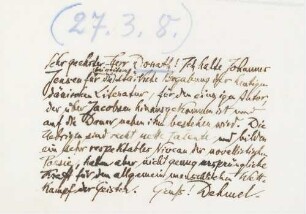 (27. 3. 8.)
Sehr geehrter Herr Donath! Ich halte Johannes
Jensen für die stärkste Begabung der heutigen
dänischen Literatur, für den einzigen Autor,
der über Jacobsen hinausgekommen ist und
auf die Dauer neben ihm bestehen wird. Die
Uebrigen sind recht nette Talente und bilden
ein sehr respektables Niveau der novellistischen
Poesie, haben aber nicht genug ursprüngliche
Kraft für den allgemein menschlichen Wett-
kampf der Geister. Gruß! Dehmel.